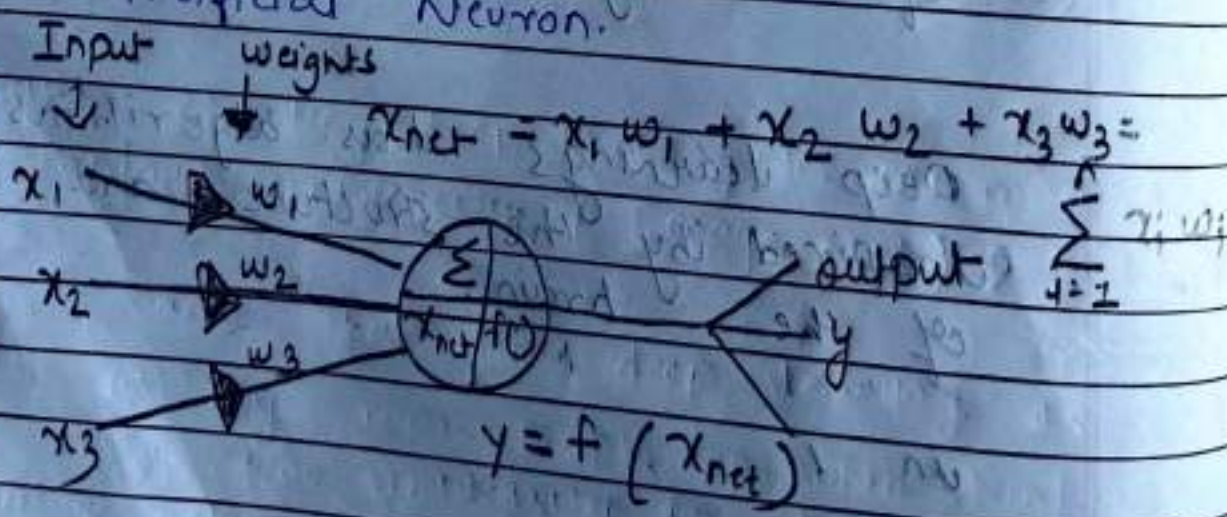 Neuron.
Input weights
x_net = x₁ w₁ + x₂ w₂ + x₃ w₃ =
n
∑ xᵢ wᵢ
i=1
x₁ w₁
x₂ w₂
x₃ w₃
Σ
x_net f()
output
y
y = f (x_net)